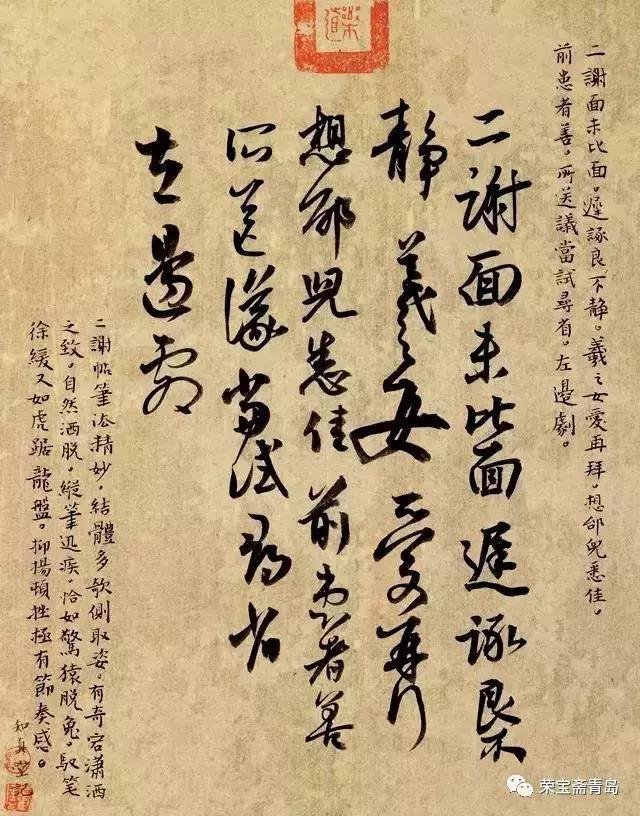 二謝面未比面。遲詠良不静。羲之女愛再拜。想邰兒悉佳。
前患者善。所送議當試尋省。左邊劇。
二謝面未比面遲詠良不
静羲之女愛再拜
想邰兒悉佳前患者善
所送議當試尋省
左邊劇
二謝帖筆法精妙，結體多欹側取姿。有奇宕瀟洒
之致，自然洒脱，縱筆迅疾，恰如驚猿脱兔。馭筆
徐緩又如虎踞龍盤。抑揚頓挫極有節奏感。
和真堂記
荣宝斋青岛